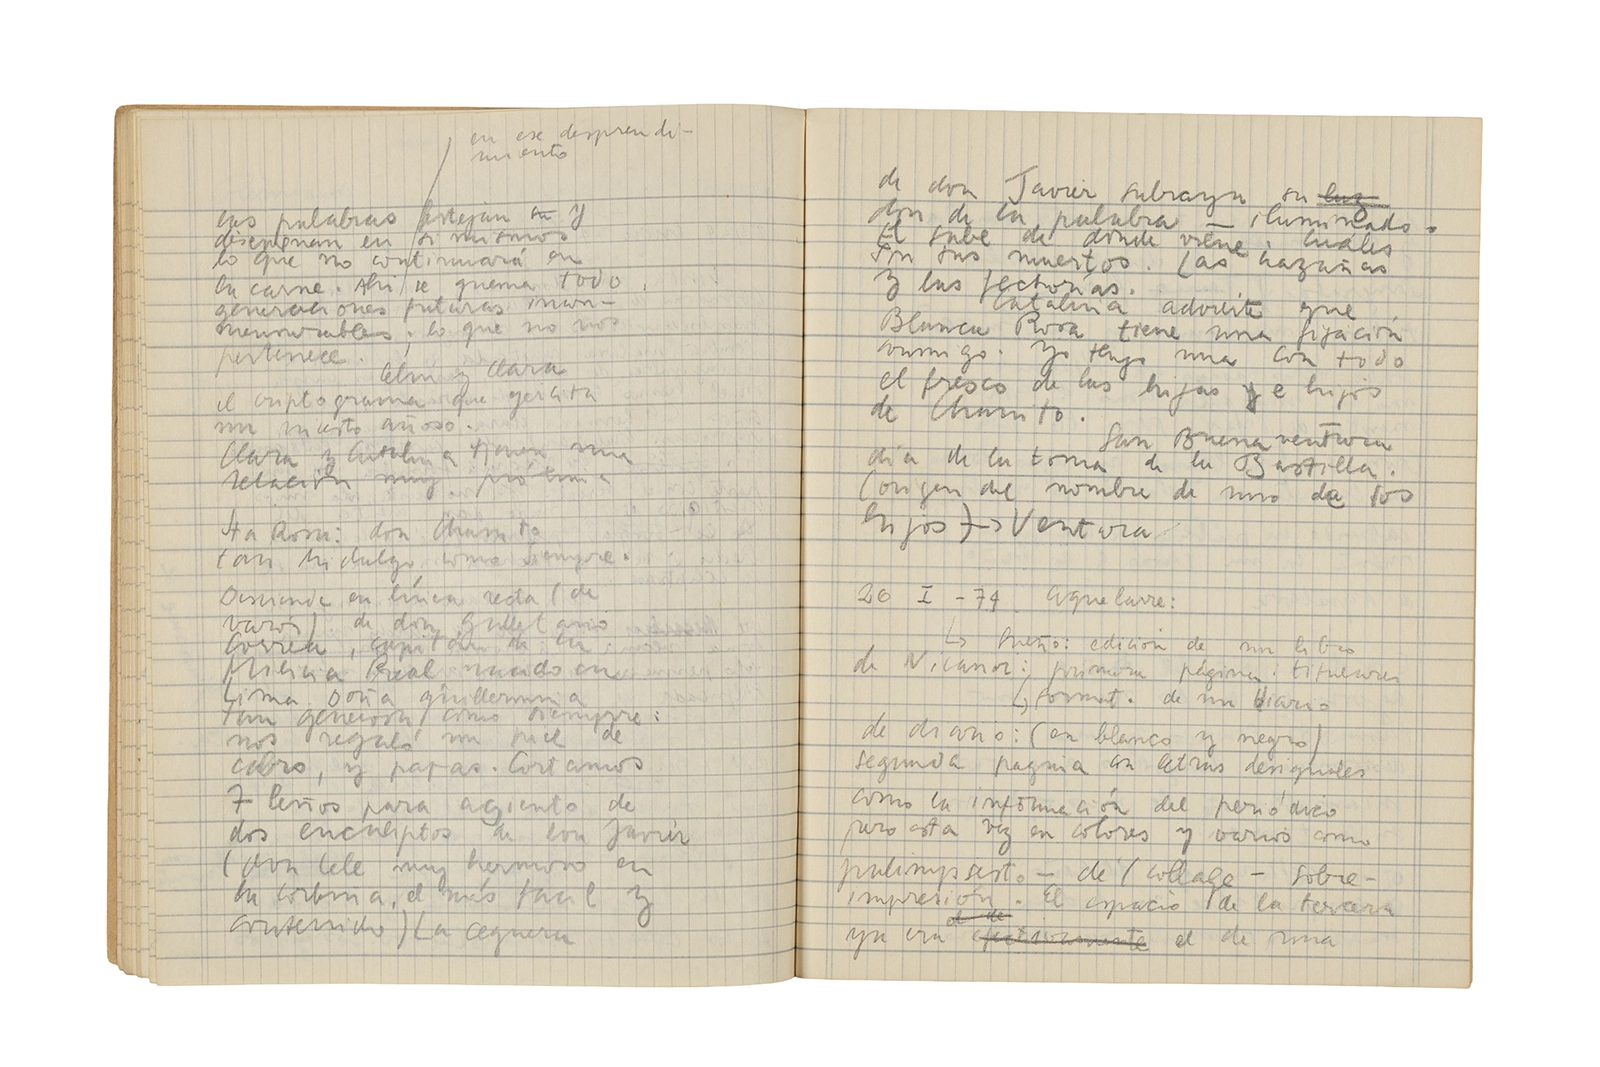 en ese desprendi-
miento
las palabras festejan su y
en sí mismos
lo que no continuará en
la carne. Ahí se quema todo.
generaciones futuras innu-
lo que no nos
pertenece.
y Clara
el criptograma que
un añoso.
Clara y Catalina tienen una
relación muy próxima
Sta Rosa: don Chumito
tan hidalgo como siempre.
Desciende en línea recta (de
varón) de don
Correa, capitán de la
Milicia Real nacido en
Lima. Doña Guillermina
tan generosa como siempre:
nos regaló un piel de
cabro, y papas. Cortamos
7 leños para asiento de
dos eucaliptos de don Javier
(don Lele muy hermoso en
la el más fácil y
contenido) La ceguera
de don Javier subraya su luz
don de la palabra – iluminado.
El sabe de dónde viene. Cuáles
son sus muertos. Las hazañas
y las fechorías.
Catalina advierte que
Blanca Rosa tiene una fijación
conmigo. Yo tengo una con todo
el fresco de las hijas y e hijos
de Chumito.
San Buenaventura
día de la toma de la Bastilla.
(origen del nombre de uno de los
hijos) → Ventura
20 I - 74 aquelarre:
↳ Sueño: edición de un libro
de Nicanor: primera página: titulares
↳ format. de un diario
de diario: (en blanco y negro)
segunda página en letras desiguales
como la información del periódico
pero esta vez en colores y varios como
palimpsesto – de (collage – sobre-
impresión. El espacio de la tercera
el de
ya era efectivamente el de una